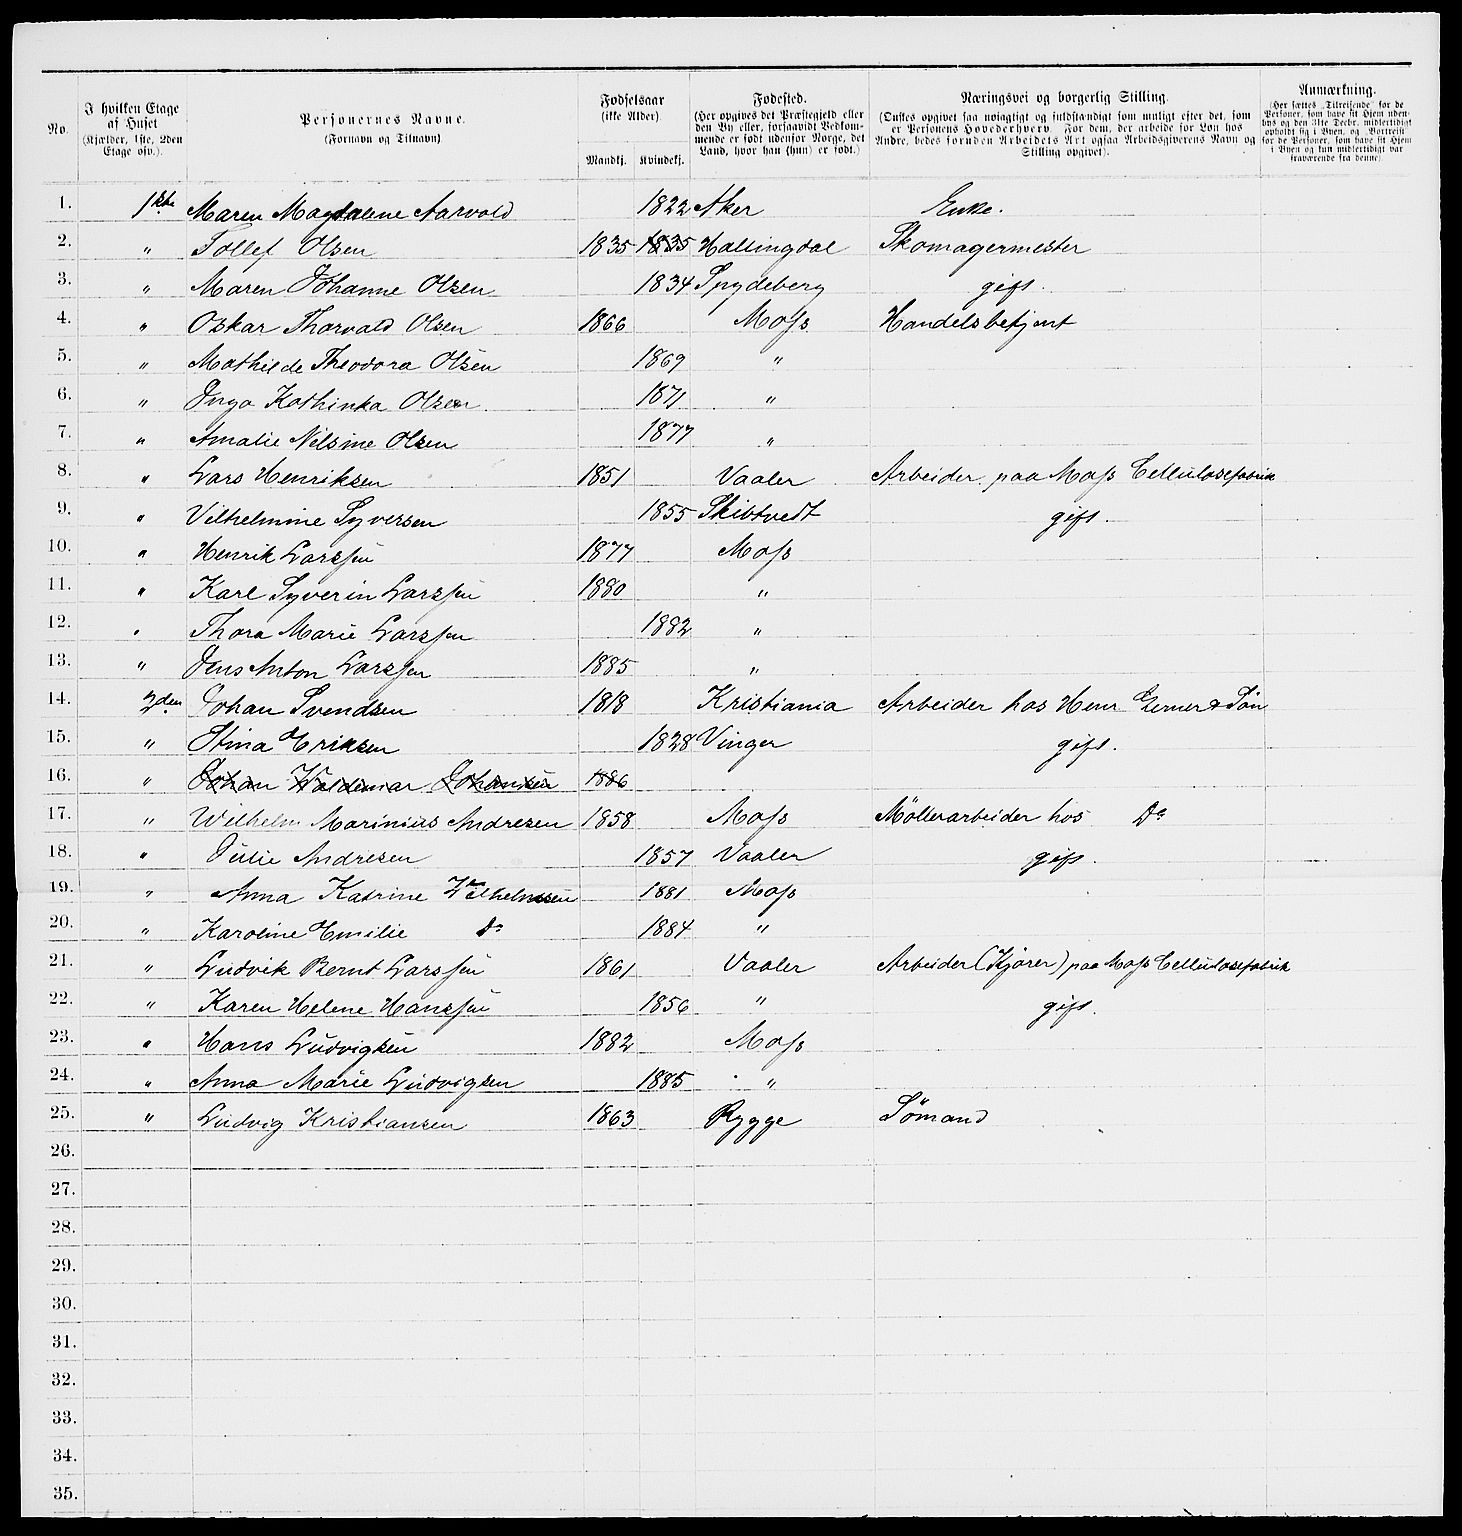 No.
I hvilken Etage af Huset (Kjælder, 1ste, 2den Etage osv.).
Personernes Navne. (Fornavn og Tilnavn).
Fødselsaar (ikke Alder).
Mandkj.
Kvindekj.
Fødested. (Her opgives det Præstegjeld eller den By eller, forsaavidt Vedkommende er født udenfor Norge, det Land, hvor han (hun) er født.)
Næringsvei og borgerlig Stilling. (Ønskes opgivet saa nøiagtigt og fuldstændigt som muligt efter det, som er Personens Hovederhverv. For dem, der arbeide for Løn hos Andre, bedes foruden Arbeidets Art ogsaa Arbeidsgiverens Navn og Stilling opgivet).
Anmærkning. (Her sættes „Tilreisende" for de Personer, som have sit Hjem udenbys og den 31te Decbr. midlertidigt opholdt sig i Byen, og „Bortreist" for de Personer, som have sit Hjem i Byen og kun midlertidigt var fraværende fra denne)
1. 1ste Maren Magdalene Aarvold 1822 Aker Enke.
2. " Tollef Olsen 1835 1835 Hallingdal Skomagermester
3. " Maren Johanne Olsen 1834 Spydeberg gift.
4. " Oskar Thorvald Olsen 1866 Moss Handelsbetjent
5. " Mathilde Theodora Olsen 1869 "
6. " Inga Kathinka Olsen. 1871 "
7. " Amalie Nilsine Olsen 1877 "
8. " Lars Henriksen 1851 Vaaler Arbeider paa Moss Cellulosefabrik
9. " Vilhelmine Syversen 1855 Skibtvedt gift.
10. " Henrik Larssen 1877 Moss
11. " Karl Syverin Larssen 1880 "
12. " Thora Marie Larssen 1882 "
13. " Jens Anton Larssen 1885 "
14. 2den Johan Svendsen 1818 Kristiania Arbeider hos Henr Gerner & Søn
15. " Stina Eriksen 1828 Vinger gift.
16. " Johan Waldemar Johansen 1886
17. " Wilhelm Marinius Andresen 1858 Moss Møllerarbeider hos Do
18. " Julie Andresen 1857 Vaaler gift.
19. " Anna Katrine Wilhelmsen 1881 Moss
20. " Karoline Emilie Do 1884 "
21. " Ludvik Bernt Larssen 1861 Vaaler Arbeider (Kjører) paa Moss Cellulosefabrik
22. " Karen Helene Hanssen 1856 " gift.
23. " Hans Ludvigsen 1882 Moss
24. " Anna Marie Ludvigsen 1885 "
25. " Ludvig Kristiansen 1863 Rygge Sømand
26.
27.
28.
29.
30.
31.
32.
33.
34.
35.